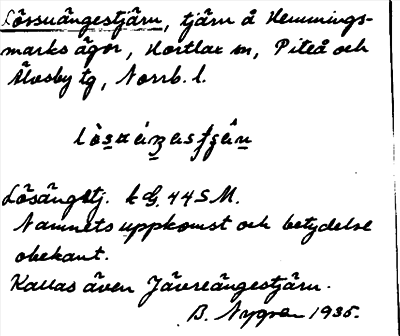 Lövsuängestjärn, tjärn å Hemmings-
marks ägor, Hortlax sn, Piteå och
Älvsby tg, Norrb. l.
Lösängstj. k G. 44 S M.
Namnets uppkomst och betydelse
obekant.
Kallas även Jävreängestjärn.
B. Nygren 1935.